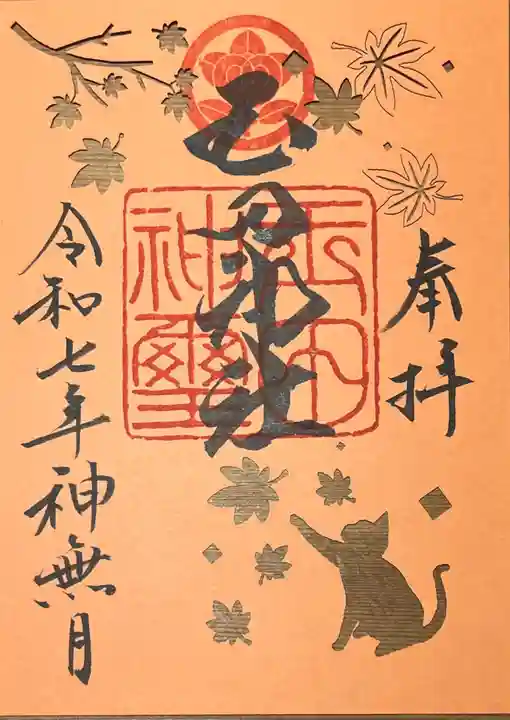 奉拝
社
神璽
令和七年神無月